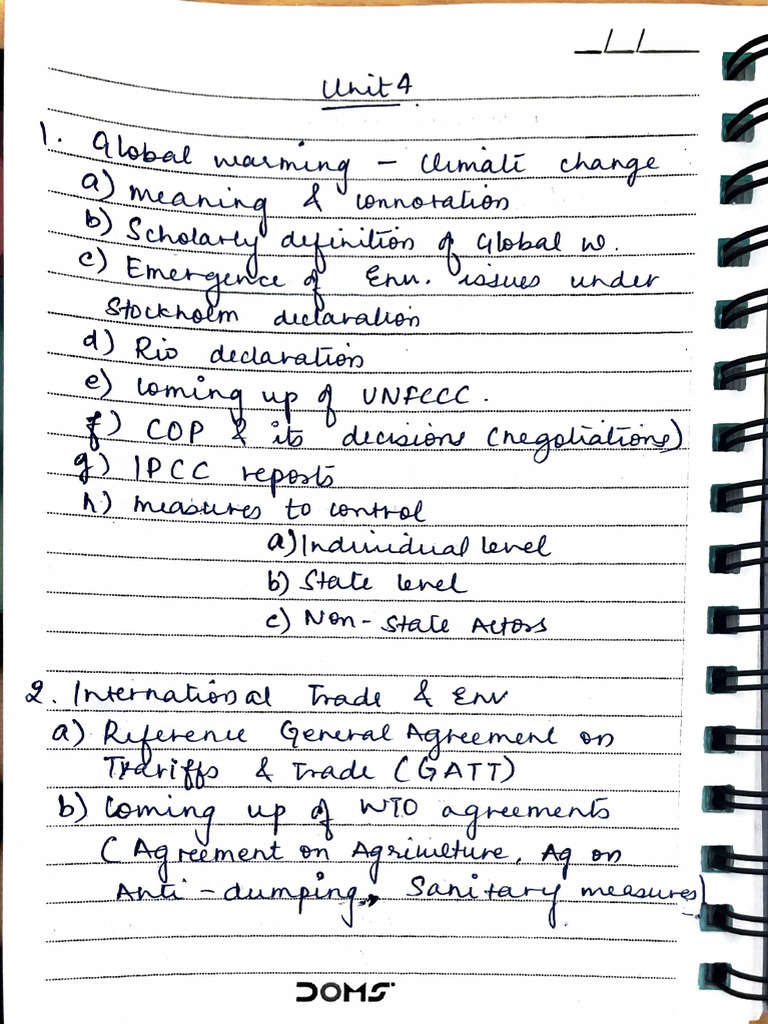 _/_/___
Unit 4
1. Global warming - Climate change
a) meaning & connotation
b) Scholarly definition of Global W.
c) Emergence of Env. issues under
Stockholm declaration
d) Rio declaration
e) Coming up of UNFCCC.
f) COP & its decisions (negotiations)
g) IPCC reports
h) measures to control
a) Individual level
b) State level
c) Non-State Actors
2. International Trade & Env
a) Reference General Agreement on
Trariffs & Trade (GATT)
b) Coming up of WTO agreements
(Agreement on Agriculture, Ag on
Anti-dumping, Sanitary measures)
DOMS